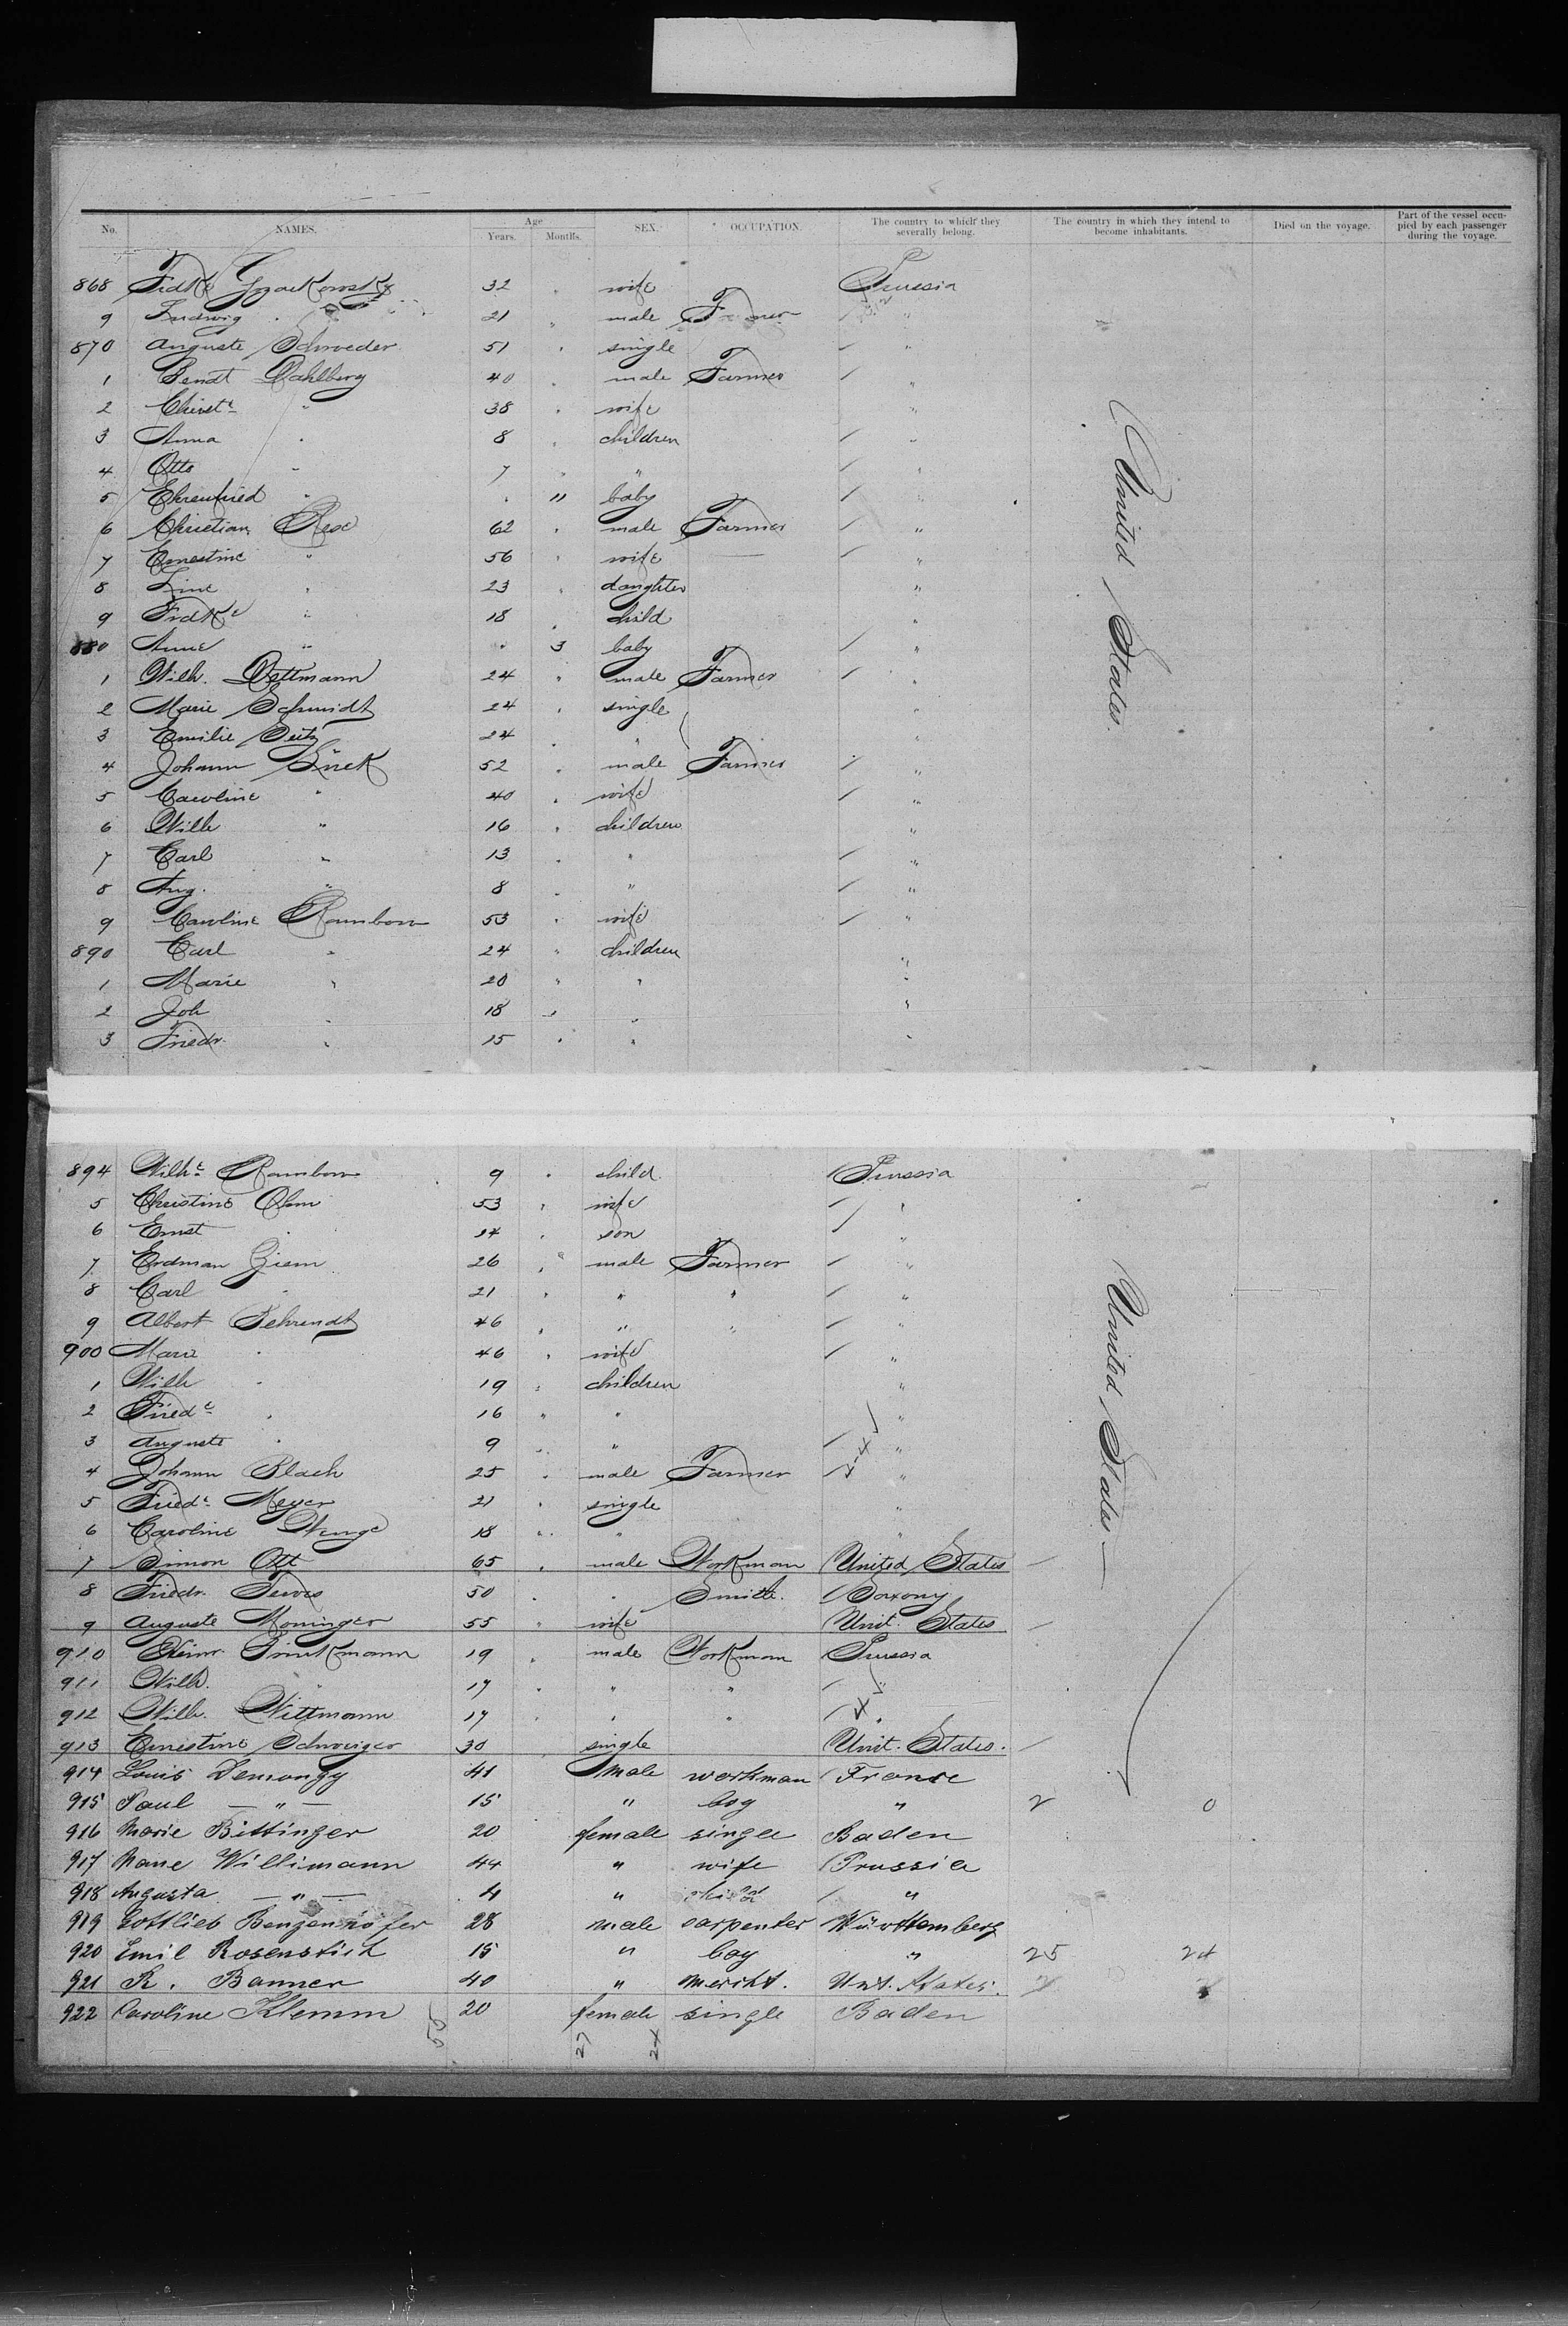 No. NAMES. Age Years. Months. SEX. OCCUPATION. The country to which they severally belong. The country in which they intend to become inhabitants. Died on the voyage. Part of the vessel occupied by each passenger during the voyage.
868 Fidke 32 wife Prussia
9 Ludwig 21 male Farmer "
870 Auguste Schroeder 51 single "
1 Bendt Dahlberg 40 male Farmer "
2 " 38 wife "
3 Anna " 8 children "
4 Otto " 7 " "
5 Ehrenfried " 11 baby "
6 Christian Rese 62 male Farmer "
7 Ernestine " 56 wife "
8 Line " 23 daughter "
9 Fidke " 18 child "
880 Anne " 3 baby "
1 Wilh. Dettmann 24 male Farmer "
2 Marie Schmidt 24 single "
3 Emilie 24 " "
4 Johann 52 male Farmer "
5 Caroline " 40 wife "
6 Wilh " 16 children "
7 Carl " 13 " "
8 Aug. " 8 " "
9 Caroline Rambow 53 wife "
890 Carl " 24 children "
1 Marie " 20 " "
2 Joh " 18 " "
3 Friedr. " 15 " "
United States
894 Wilhe Rambow 9 child Prussia
5 Christine Ohm 53 wife "
6 Ernst " 14 son "
7 Erdman Ziem 26 male Farmer "
8 Carl " 21 " " "
9 Albert Behrendt 46 " " "
900 Marie " 46 wife "
1 Wilh " 19 children "
2 Friede " 16 " "
3 Auguste " 9 " "
4 Johann Blach 25 male Farmer "
5 Friede Meyer 21 single "
6 Caroline 18 " "
7 Simon Ott 65 male Workman United States
8 Friedr. Tewes 50 " Smith. Saxony
9 Auguste Moninger 55 wife Unit. States
910 Heinr. Brinkmann 19 male Workman Prussia
911 Wilh. " 17 " " "
912 Wilh. Wittmann 17 " " "
913 Ernestine Schweiger 30 single Unit. States.
914 Louis Demongy 41 male workman France
915 Paul — " — 15 " boy " 2 0
916 Marie Bittinger 20 female single Baden
917 Marie Willimann 44 " wife Prussia
918 Augusta — " — 4 " child "
919 Gottlieb Benzenhöfer 28 male carpenter Württemberg
920 Emil Rosenstiel 15 " boy " 25 24
921 R. Banner 40 " mercht. Unt. States.
922 Caroline Klemm 20 female single Baden
United States —
55 27 24